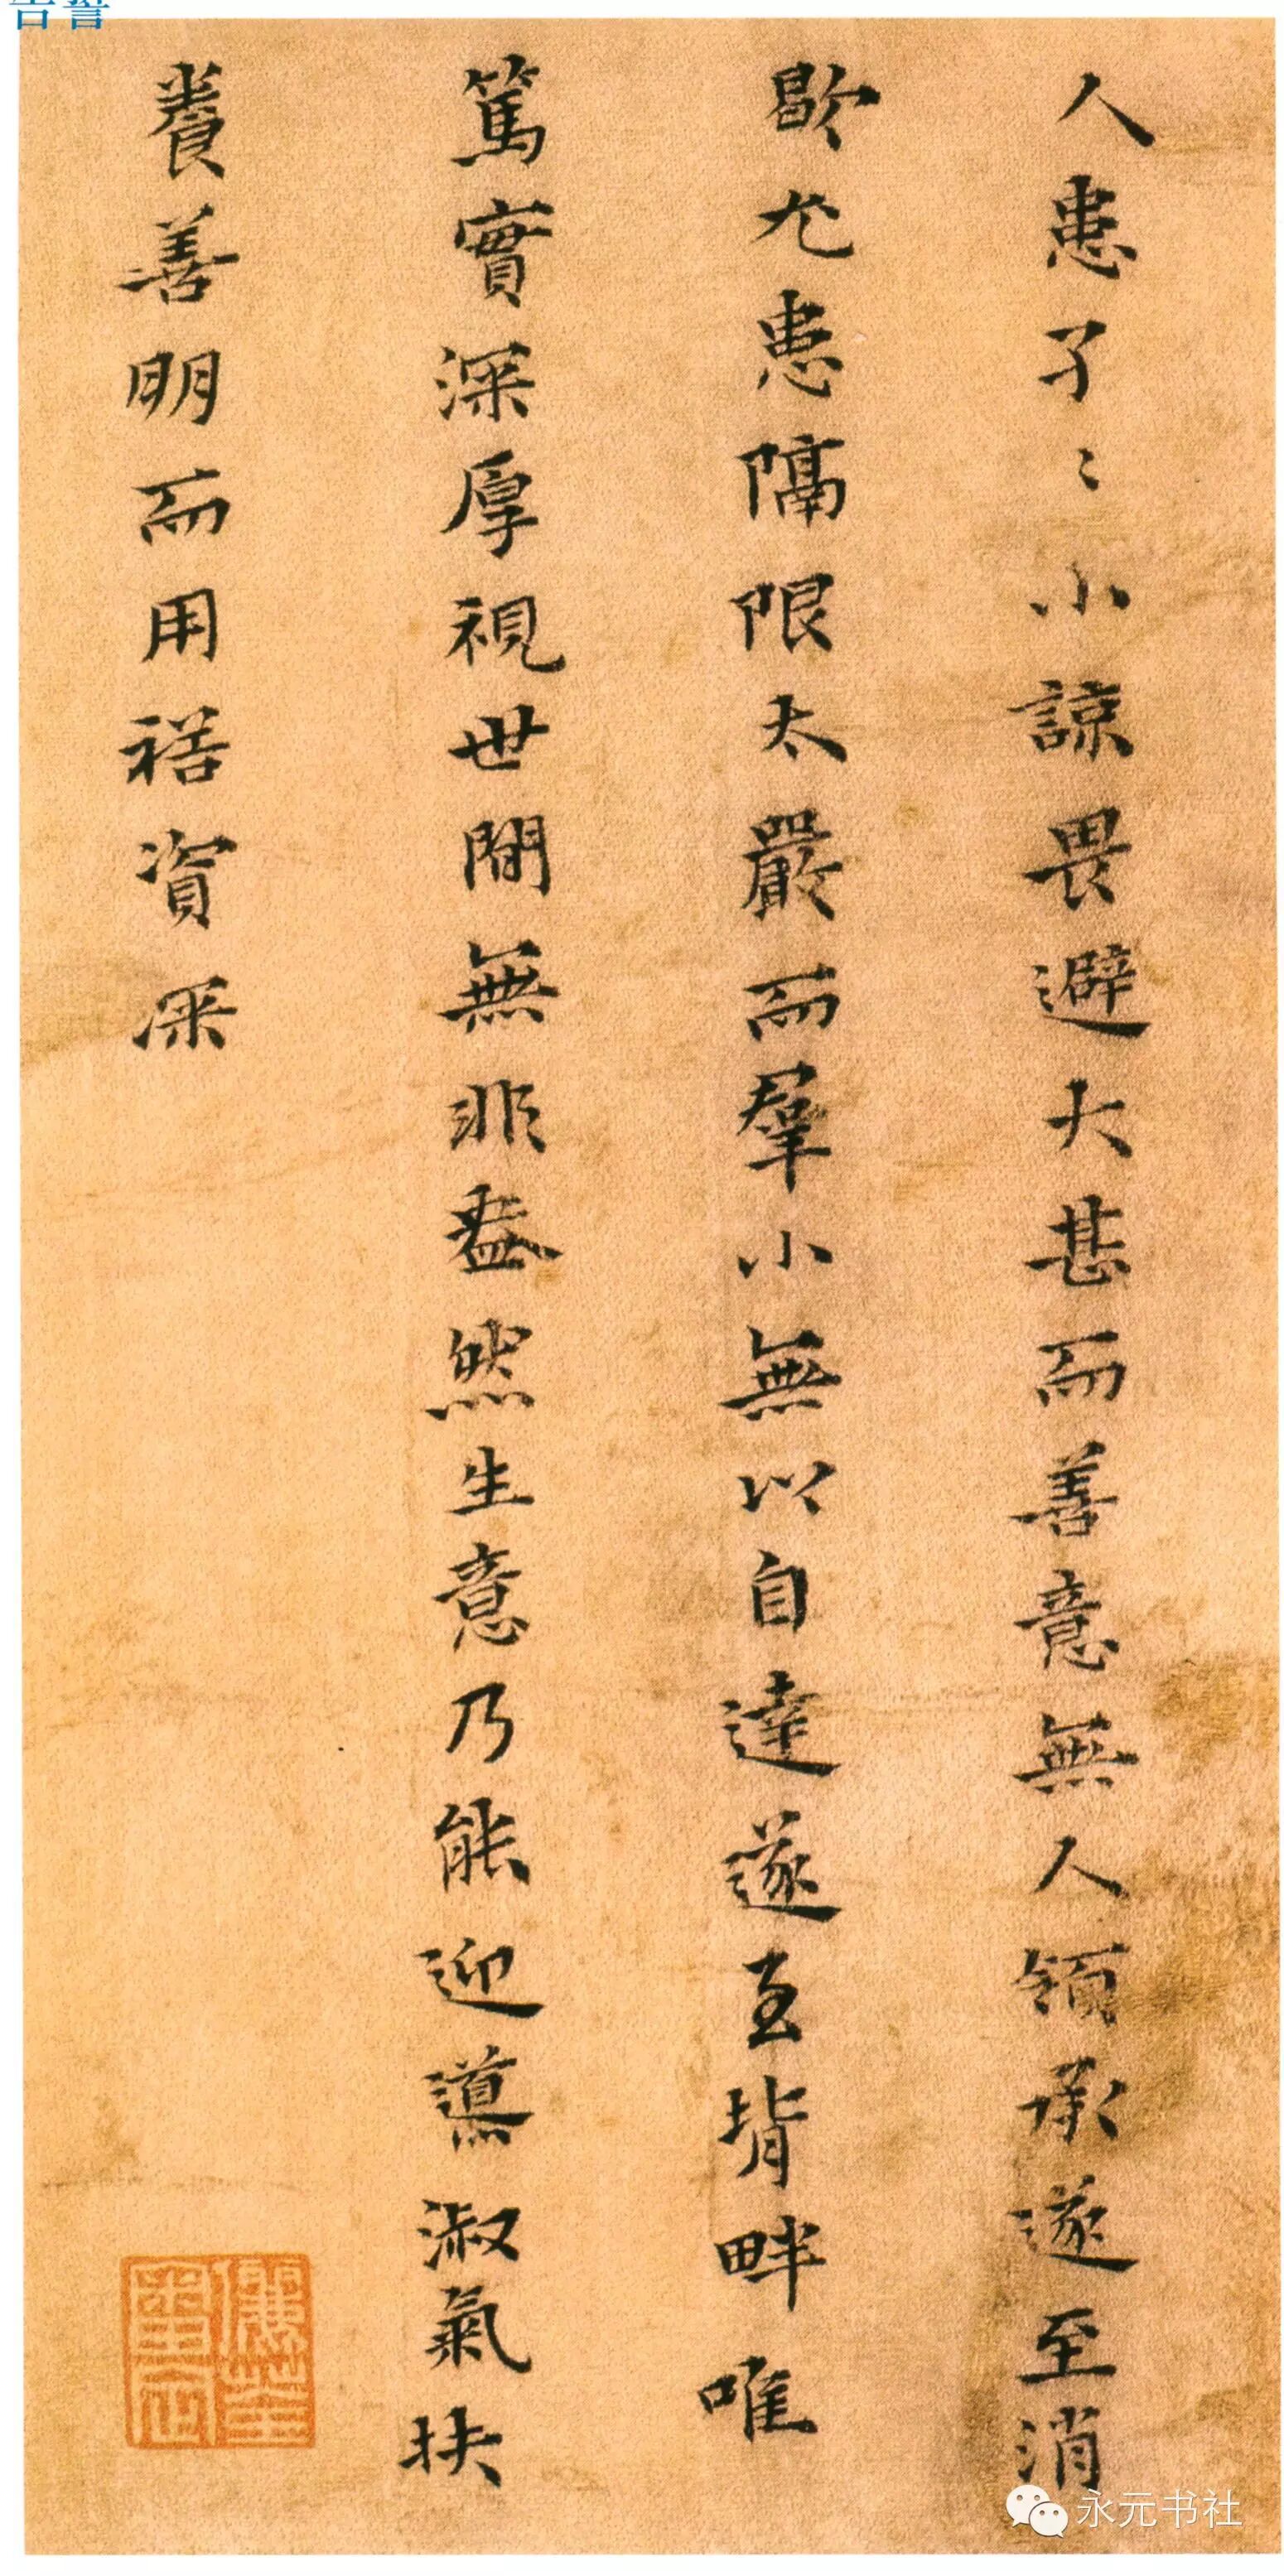 告誓
人患孑〻小諒畏避大甚而善意無人領承遂至消
歇尤患隔限太嚴而羣小無以自達遂至背畔唯
篤實深厚視世間無非盎然生意乃能迎導淑氣扶
養善明而用裕資深
永元书社